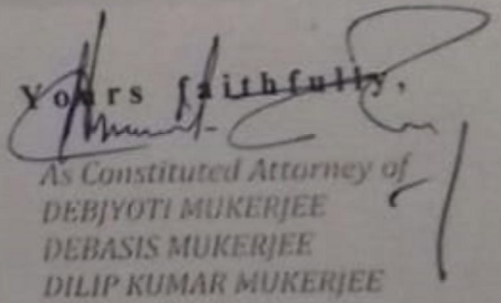 Yours faithfully,
As Constituted Attorney of
DEBJYOTI MUKERJEE
DEBASIS MUKERJEE
DILIP KUMAR MUKERJEE